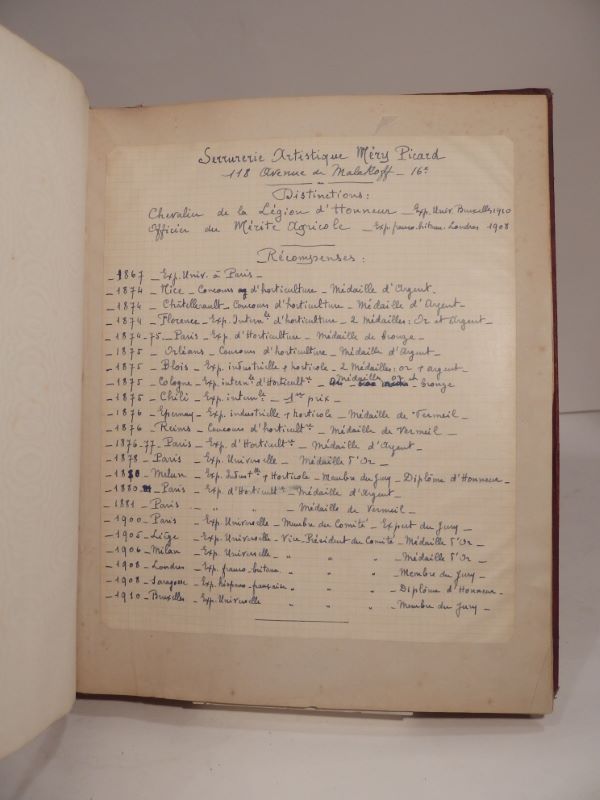 Serrurerie Artistique Méry Picard
118 Avenue de Malakoff - 16e
Distinctions :
Chevalier de la Légion d'Honneur - Exp. Univ. Bruxelles 1910
Officier du Mérite Agricole - Exp. franco-britann. Londres 1908
Récompenses :
- 1867 - Exp. Univ. à Paris -
- 1874 - Nice - Concours d'horticulture - Médaille d'Argent -
- 1874 - Châtellerault - Concours d'horticulture - Médaille d'Argent -
- 1874 - Florence - Exp. Intern.le d'horticulture - 2 Médailles : Or et Argent -
- 1874-75 - Paris - Exp. d'Horticulture - Médaille de bronze -
- 1875 - Orléans - Concours d'horticulture - Médaille d'Argent -
- 1875 - Blois - Exp. industrielle & horticole - 2 Médailles : or & argent -
- 1875 - Cologne - Exp. intern.le d'Horticult.re - Médailles or et bronze
- 1875 - Chili - Exp. intern.le - 1er prix -
- 1876 - Epernay - Exp. industrielle & horticole - Médaille de Vermeil -
- 1876 - Reims - Concours d'horticult.re - Médaille de Vermeil -
- 1876-77 - Paris - Exp. d'Horticult.re - Médaille d'Argent -
- 1878 - Paris - Exp. Universelle - Médaille d'Or -
- 1880 - Melun - Exp. Indust.lle & Horticole - Membre du Jury - Diplôme d'Honneur -
- 1880 - Paris - Exp. d'Horticult.re - Médaille d'Argent -
- 1881 - Paris - " " - Médaille de Vermeil -
- 1900 - Paris - Exp. Universelle - Membre du Comité - Expert du Jury -
- 1905 - Liège - Exp. Universelle - Vice-Président du Comité - Médaille d'Or -
- 1906 - Milan - Exp. Universelle - " " " - Médaille d'Or -
- 1908 - Londres - Exp. franco-britann. " " " - Membre du Jury -
- 1908 - Saragosse - Exp. hispano-française " " " - Diplôme d'Honneur -
- 1910 - Bruxelles - Exp. Universelle " " " - Membre du Jury -